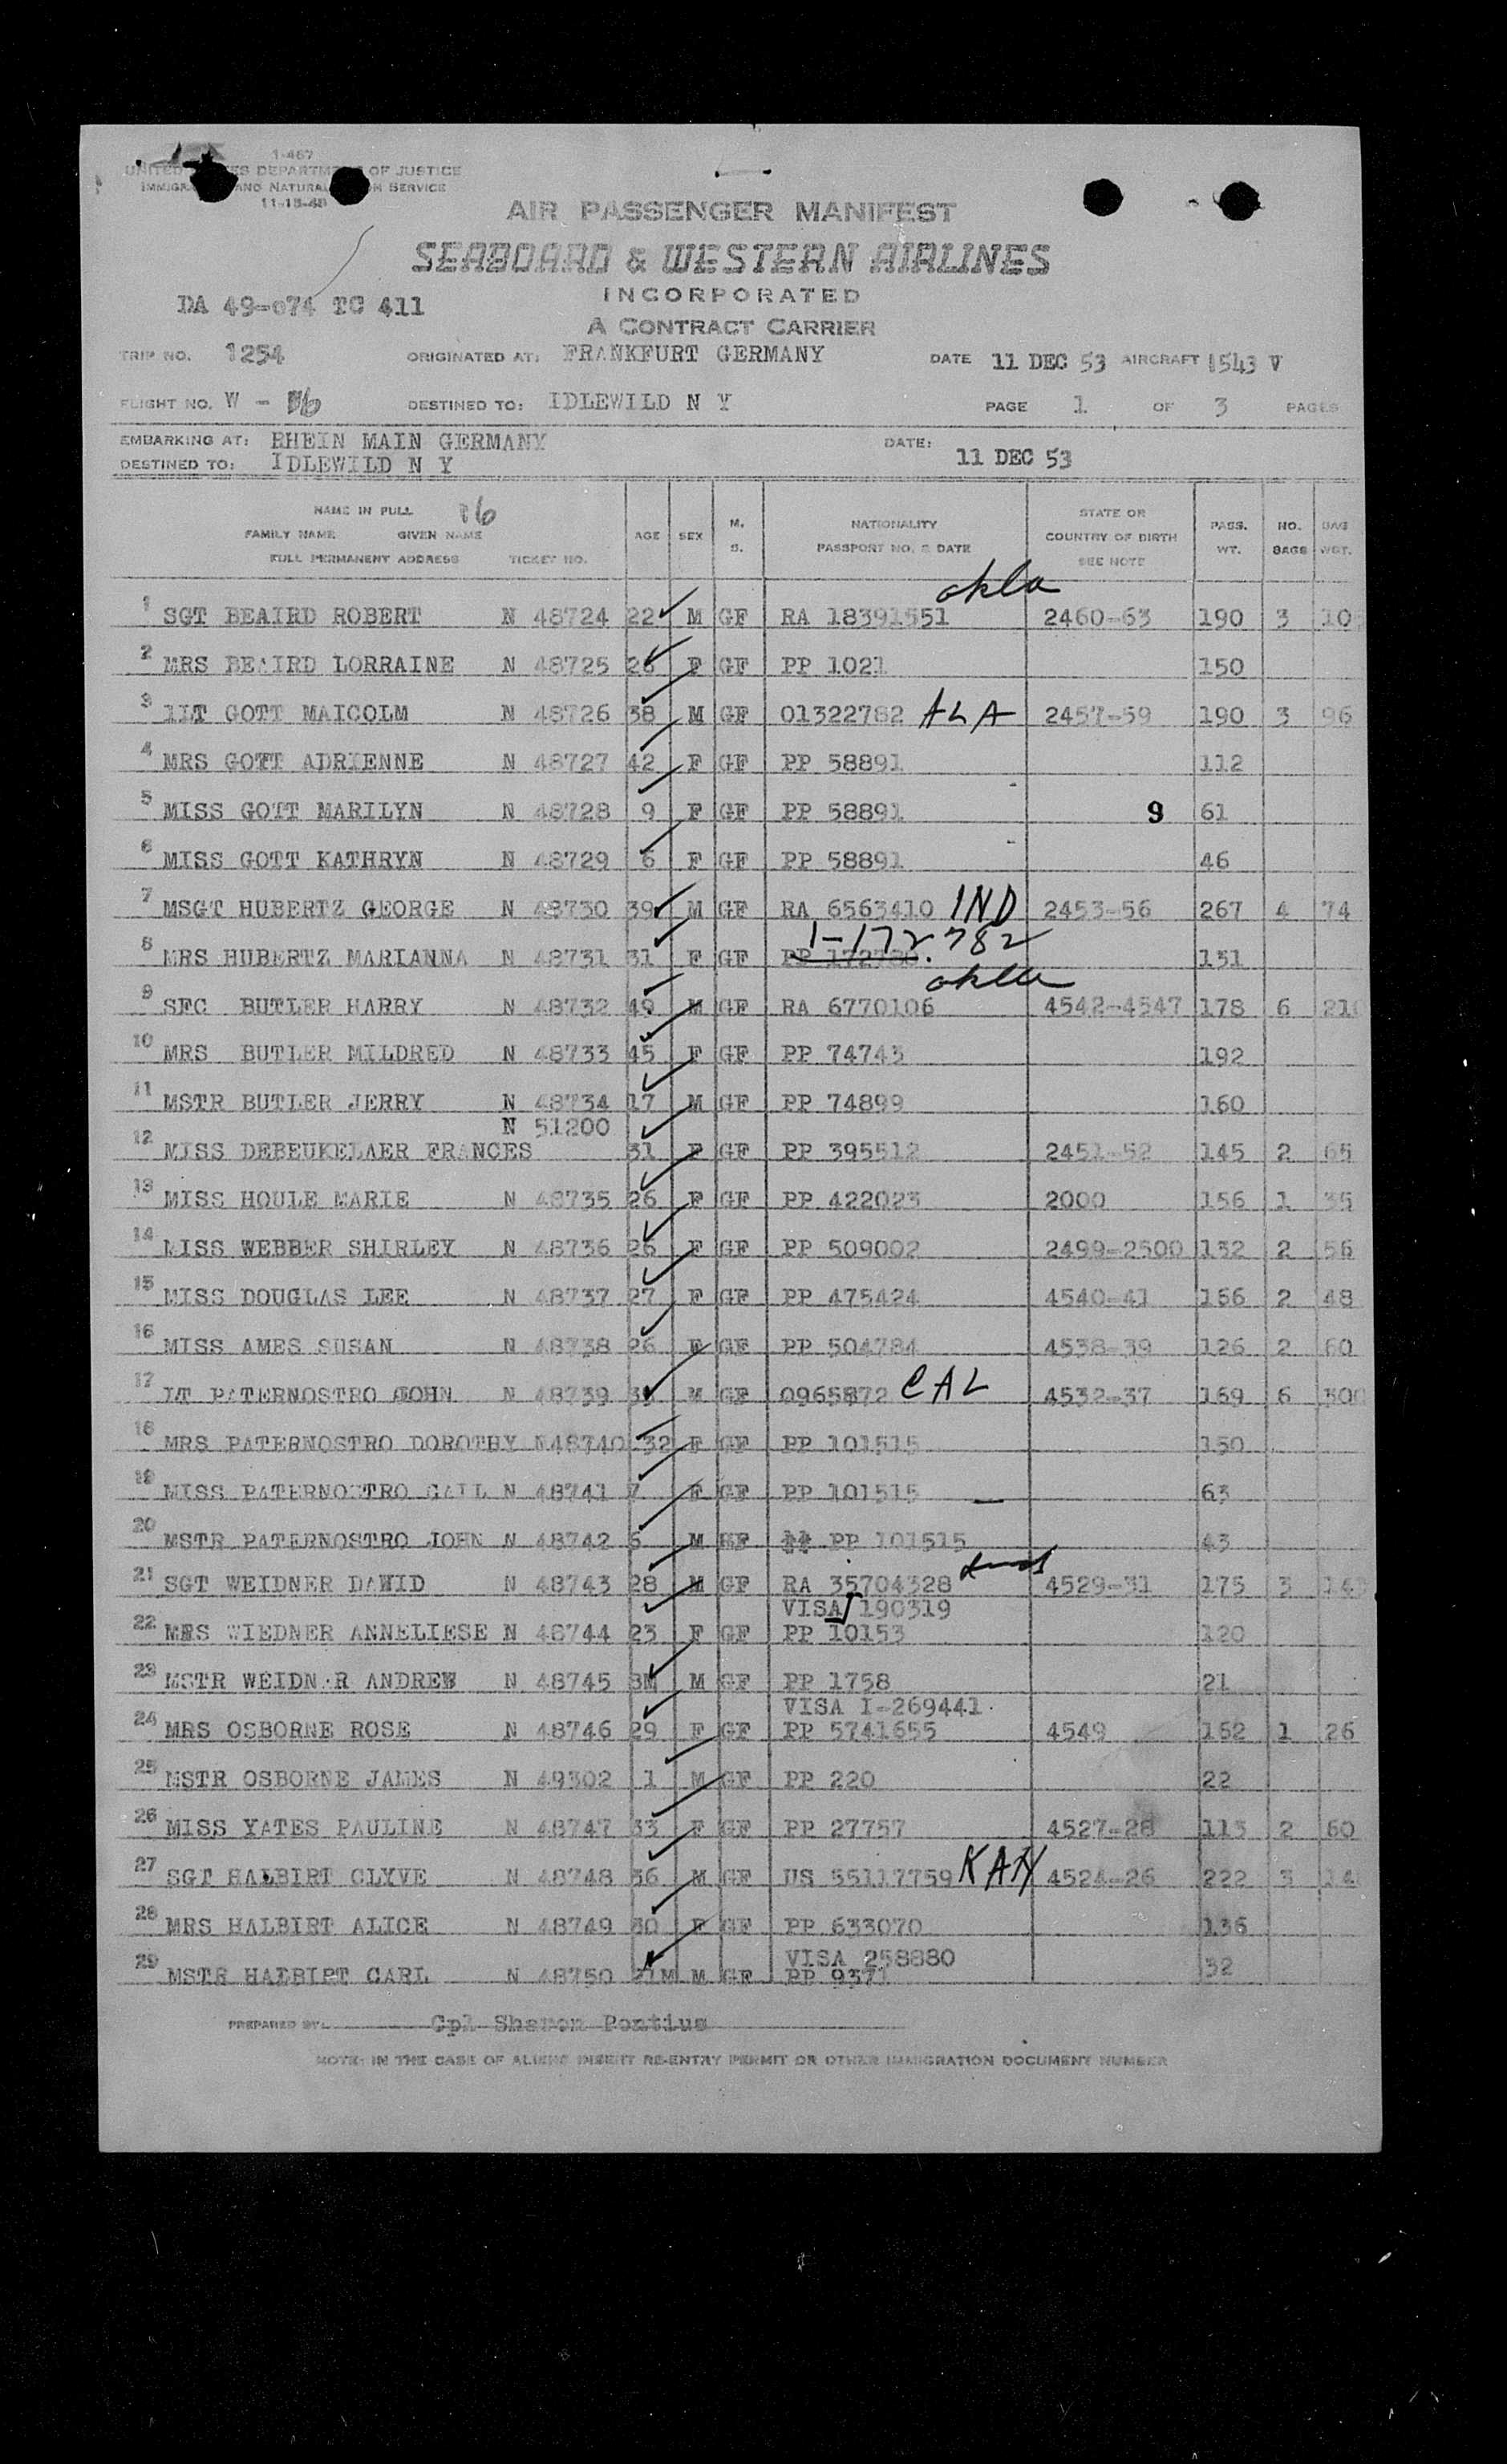 1-467
UNITED STATES DEPARTMENT OF JUSTICE
IMMIGRATION AND NATURALIZATION SERVICE
11-18-48
AIR PASSENGER MANIFEST
SEABOARD & WESTERN AIRLINES
INCORPORATED
DA 49-074 TC 411
A CONTRACT CARRIER
TRIP NO. 1254 ORIGINATED AT: FRANKFURT GERMANY DATE 11 DEC 53 AIRCRAFT 1543 V
FLIGHT NO. W - 86 DESTINED TO: IDLEWILD N Y PAGE 1 OF 3 PAGES
EMBARKING AT: RHEIN MAIN GERMANY DATE: 11 DEC 53
DESTINED TO: IDLEWILD N Y
NAME IN FULL 86
FAMILY NAME GIVEN NAME AGE SEX M. S. NATIONALITY PASSPORT NO. & DATE STATE OR COUNTRY OF BIRTH SEE NOTE PASS. WT. NO. BAGS BAG WGT.
FULL PERMANENT ADDRESS TICKET NO.
okla
1 SGT BEAIRD ROBERT N 48724 22 M GF RA 18391551 2460-63 190 3 10
2 MRS BEAIRD LORRAINE N 48725 26 F GF PP 1021 150
3 1LT GOTT MALCOLM N 48726 38 M GF 01322782 ALA 2457-59 190 3 96
4 MRS GOTT ADRIENNE N 48727 42 F GF PP 58891 112
5 MISS GOTT MARILYN N 48728 9 F GF PP 58891 9 61
6 MISS GOTT KATHRYN N 48729 6 F GF PP 58891 46
7 MSGT HUBERTZ GEORGE N 48730 39 M GF RA 6563410 IND 2453-56 267 4 74
1-172782
8 MRS HUBERTZ MARIANNA N 48731 31 F GF PP 131
okla
9 SFC BUTLER HARRY N 48732 49 M GF RA 6770106 4542-4547 178 6 210
10 MRS BUTLER MILDRED N 48733 45 F GF PP 74743 192
11 MSTR BUTLER JERRY N 48734 17 M GF PP 74899 160
N 51200
12 MISS DEBEUKELAER FRANCES 31 F GF PP 395512 2451-52 145 2 65
13 MISS HOULE MARIE N 48735 26 F GF PP 422023 2000 156 1 35
14 MISS WEBBER SHIRLEY N 48736 26 F GF PP 509002 2499-2500 132 2 56
15 MISS DOUGLAS LEE N 48737 27 F GF PP 475424 4540-41 166 2 48
16 MISS AMES SUSAN N 48738 26 F GF PP 504784 4538-39 126 2 60
17 LT PATERNOSTRO JOHN N 48739 M GF 0965872 CAL 4532-37 169 6 300
18 MRS PATERNOSTRO DOROTHY N48740 32 F GF PP 101515 150
19 MISS PATERNOSTRO GAIL N 48741 7 F GF PP 101515 63
20 MSTR PATERNOSTRO JOHN N 48742 6 M GF PP 101515 43
21 SGT WEIDNER DAVID N 48743 28 M GF RA 35704328 4529-31 175 3 143
VISA 190319
22 MRS WIEDNER ANNELIESE N 48744 23 F GF PP 10153 120
23 MSTR WEIDNER ANDREW N 48745 8M M GF PP 1758 21
VISA I-269441
24 MRS OSBORNE ROSE N 48746 29 F GF PP 5741655 4549 162 1 26
25 MSTR OSBORNE JAMES N 49302 1 M GF PP 220 22
26 MISS YATES PAULINE N 48747 33 F GF PP 27757 4527-28 113 2 60
27 SGT HALBIRT CLYVE N 48748 36 M GF US 55117759 KAN 4524-26 222 3 14
28 MRS HALBIRT ALICE N 48749 30 F GF PP 633070 136
VISA 258880
29 MSTR HALBIRT CARL N 48750 21M M GF PP 9371 32
PREPARED BY: Cpl Sharon Pontius
NOTE: IN THE CASE OF ALIENS INSERT RE-ENTRY PERMIT OR OTHER IMMIGRATION DOCUMENT NUMBER